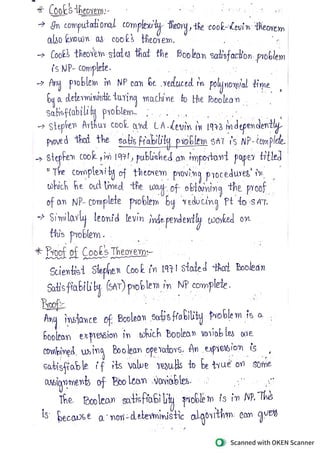 * Cook's theorem:-
→ In computational complexity theory, the cook-Levin theorem
also known as cook's theorem.
→ Cook's theorem states that the Boolean satisfaction problem
is NP-complete.
→ Any problem in NP can be reduced in polynomial time
by a deterministic turing machine to the Boolean
satisfiability problem.
→ Stephen Arthur cook and L.A. Levin in 1973 independently
proved that the satisfiability problem SAT is NP-complete.
→ Stephen cook, in 1971, published an important paper titled
"The complexity of theorem proving procedures" in
which he outlined the way of obtaining the proof
of an NP-complete problem by reducing it to SAT.
→ Similarly leonid levin independently worked on
this problem.
* Proof of Cook's Theorem:-
Scientist Stephen Cook in 1971 stated that Boolean
Satisfiability (SAT) problem in NP complete.
Proof:-
Any instance of Boolean satisfiability problem is a
boolean expression in which Boolean variables are
combined using Boolean operators. An expression is
satisfiable if its value results to be true on some
assignments of Boolean variables.
The Boolean satisfiability problem is in NP. This
is because a non-deterministic algorithm can guess
Scanned with OKEN Scanner